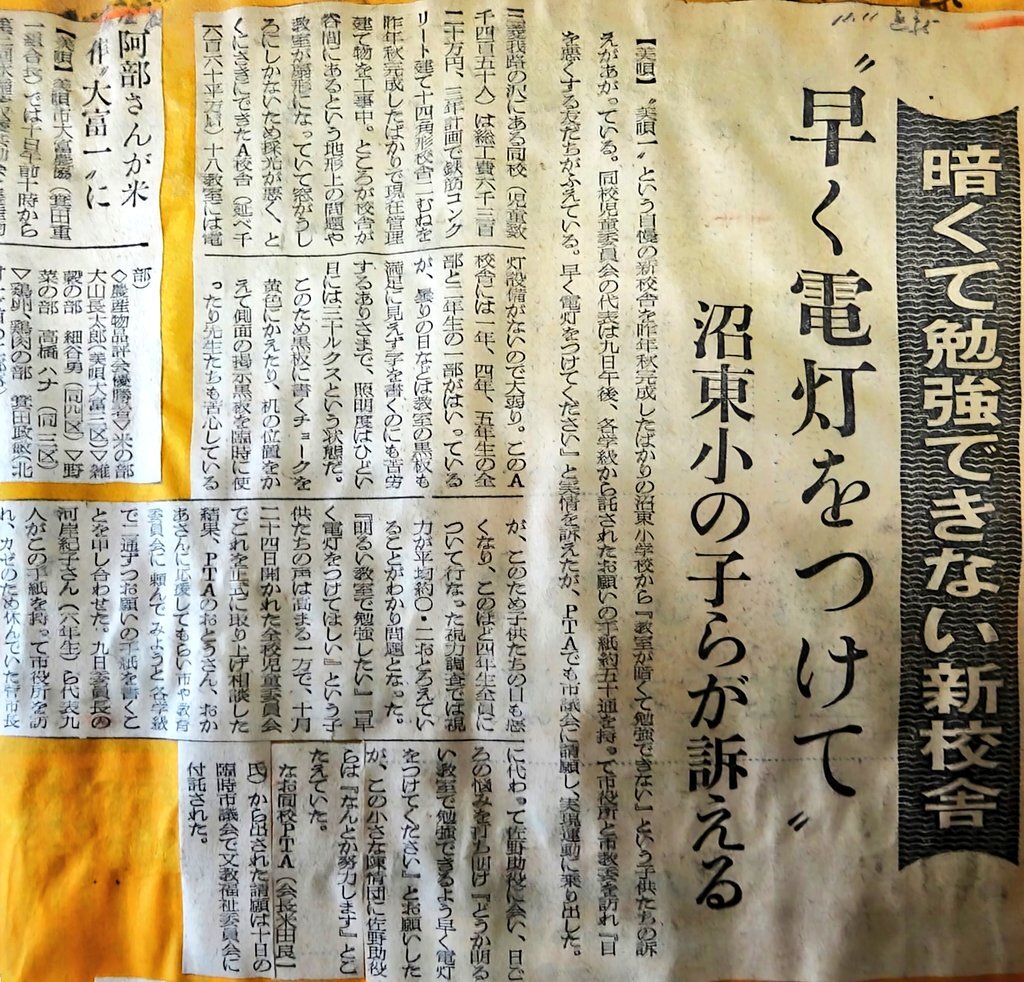 暗くて勉強できない新校舎
〝早く電灯をつけて〟
沼東小の子らが訴える
【美唄】〝美唄一〟という自慢の新校舎を昨年秋完成したばかりの沼東小学校から『教室が暗くて勉強できない』という子供たちの訴
えがあがっている。同校児童委員会の代表は九日午後、各学級から託されたお願いの手紙約五十通を持って市役所と市教委を訪れ『目
を悪くする友だちがふえている。早く電灯をつけてください』と実情を訴えたが、PTAでも市議会に請願し、実現運動に乗り出した。
三菱我路の沢にある同校（児童数
千四百五十人）は総工費六千三百
二十万円、三年計画で鉄筋コンク
リート建て十四角形校舎二むねを
昨年秋完成したばかりで現在管理
建て物を工事中。ところが校舎が
谷間にあるという地形上の問題や
教室が扇形になっていて窓がうし
ろにしかないため採光が悪く、と
くにさきにできたA校舎（延べ千
六百六十平方㍍）十八教室には電
灯設備がないので大弱り。このA
校舎には一年、四年、五年生の全
部と二年生の一部がはいっている
が、曇りの日などは教室の黒板も
満足に見えず字を書くのにも苦労
するありさまで、照明度はひどい
日には三十ルクスという状態だ。
このため黒板に書くチョークを
黄色にかえたり、机の位置をか
えて側面の掲示黒板を臨時に使
ったり先生たちも苦心している
が、このため子供たちの目も悪
くなり、このほど四年生全員に
ついて行なった視力調査では視
力が平均約〇・二おとろえてい
ることがわかり問題となった。
『明るい教室で勉強したい』『早
く電灯をつけてほしい』という子
供たちの声は高まる一方で、十月
二十四日開かれた全校児童委員会
でこれを正式に取り上げ相談した
結果、PTAのおとうさん、おか
あさんに応援してもらい市や教育
委員会に頼んでみようと各学級
で二通ずつお願いの手紙を書くこ
とを申し合わせた。九日委員長の
河岸紀子さん（六年生）ら代表九
人がこの手紙を持って市役所を訪
れ、カゼのため休んでいた菅市長
に代わって佐野助役に会い、日ご
ろの悩みを打ち明け『どうか明る
い教室で勉強できるよう早く電灯
をつけてください』とお願いした
が、この小さな陳情団に佐野助役
らは『なんとか努力します』とこ
たえていた。
なお同校PTA（会長米田良一
氏）から出された請願は十日の
臨時市議会で文教福祉委員会に
付託された。
阿部さんが米
作〝大富一〟に
【美唄】美唄市大富農協（窪田重
一組合長）では十日午前十時から
部）
◇農産物品評会優勝者▽米の部
大山長太郎（美唄大富二区）▽雑
穀の部 細谷勇（同四区）▽野
菜の部 高橋ハナ（同三区）
▽鶏卵、鶏肉の部 窪田政敏（北